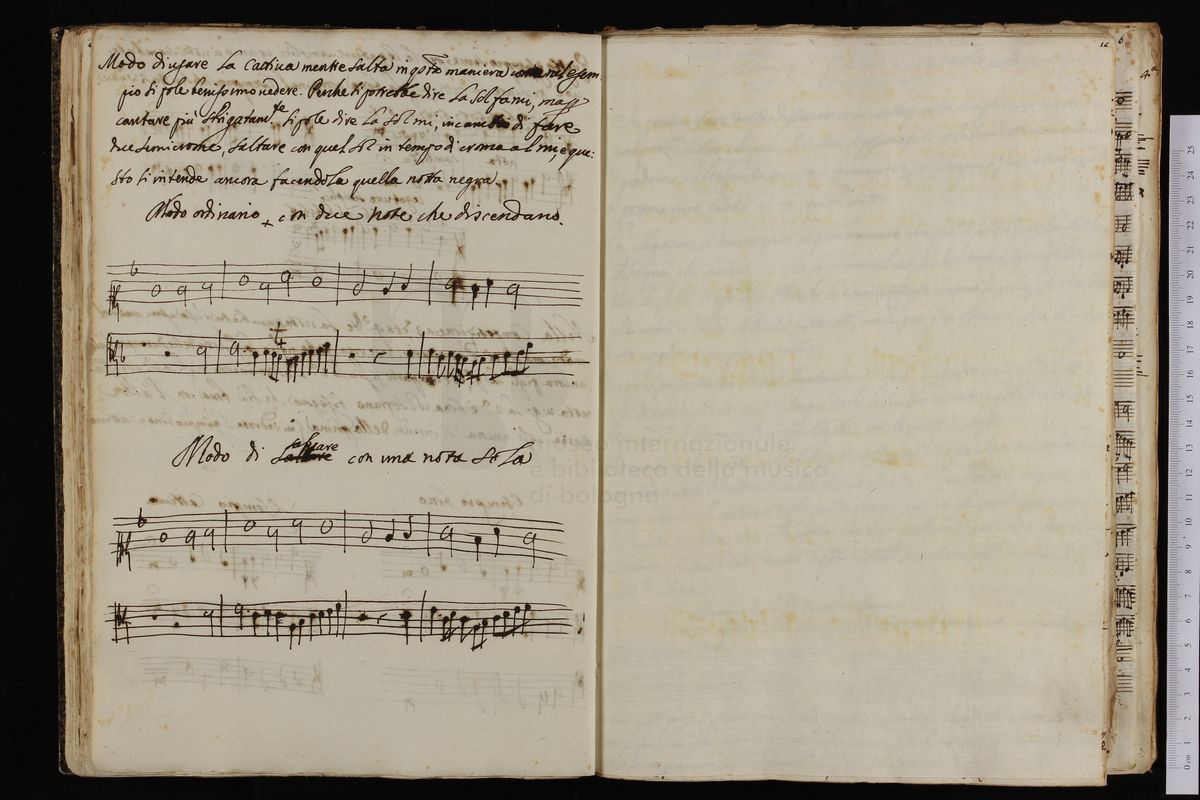 Modo di usare La Cattiva mentre Salta in q.sta maniera come nel esem=
pio si pole benissimo vedere. Perche si potrebbe dire La Sol fa mi, ma p
cantare più sbrigatam.te si pole dire La Sol mi, in cambio di fare
due semicrome, saltare con quel Sol in tempo di croma al mi, e que=
sto s'intende ancora facendola quella nota negra.
Modo ordinario con due note che discendano.
Modo di saltare con una nota Sola
museo internazionale
e biblioteca della musica
di bologna
0 cm 1 2 3 4 5 6 7 8 9 10 11 12 13 14 15 16 17 18 19 20 21 22 23 24 25